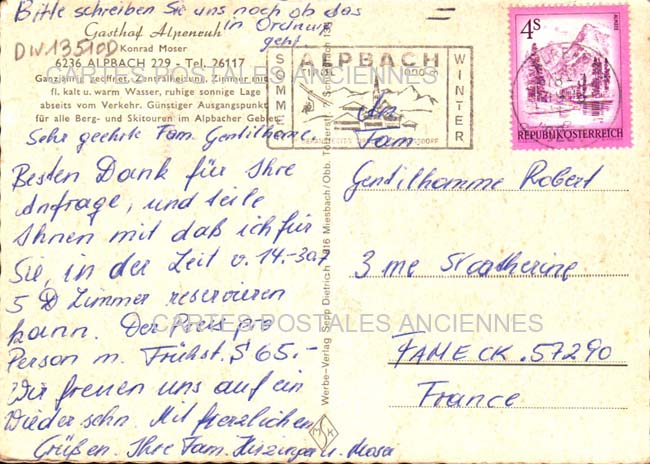 Bitte schreiben Sie uns noch ob das
in Ordnung
geht.
DIV13510D
Gasthof Alpeneuh
Konrad Moser
6236 ALPBACH 229 - Tel. 26117
Ganzjährig geöffnet, Zentralheizung, Zimmer mit
fl. kalt u. warm Wasser, ruhige sonnige Lage
abseits vom Verkehr. Günstiger Ausgangspunkt
für alle Berg- und Skitouren im Alpbacher Gebiet
Sehr geehrte Fam. Gentilhome.
Besten Dank für Ihre
Anfrage, und teile
Ihnen mit daß ich für
Sie, in der Zeit v. 14.-30.7
5 D Zimmer reservieren
kann. Der Preis pro
Person m. Frühst. S 65.-
Wir freuen uns auf ein
Wiedersehn. Mit herzlichen
Grüßen. Ihre Fam. u. Moser
Werbe-Verlag Sepp Dietrich 816 Miesbach/Obb.
MSK
SOMMER
ALPBACH
TIROL 1000 m
WINTER
4S
REPUBLIK ÖSTERREICH
An
Fam
Gentilhomme Robert
3 me St catherine
FAMECK. 57290
France
CARTES POSTALES ANCIENNES
CARTES POSTALES ANCIENNES